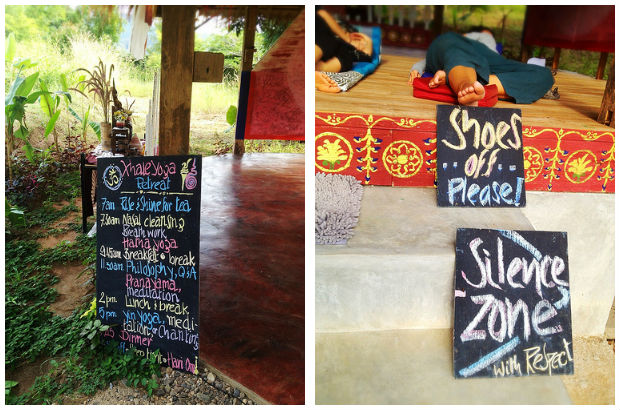 Xhale Yoga
Retreat
7am Rise & Shine for tea
7.30am Nasal cleansing
Breathwork
Hatha yoga
9.15am Breakfast + break
11.30am Philosophy, Q&A
Pranayama,
meditation
2 pm Lunch & break
5 pm Yin Yoga, medi-
tation & Chanting
Dinner
Shoes
off
Please!
Silence
Zone
with Respect